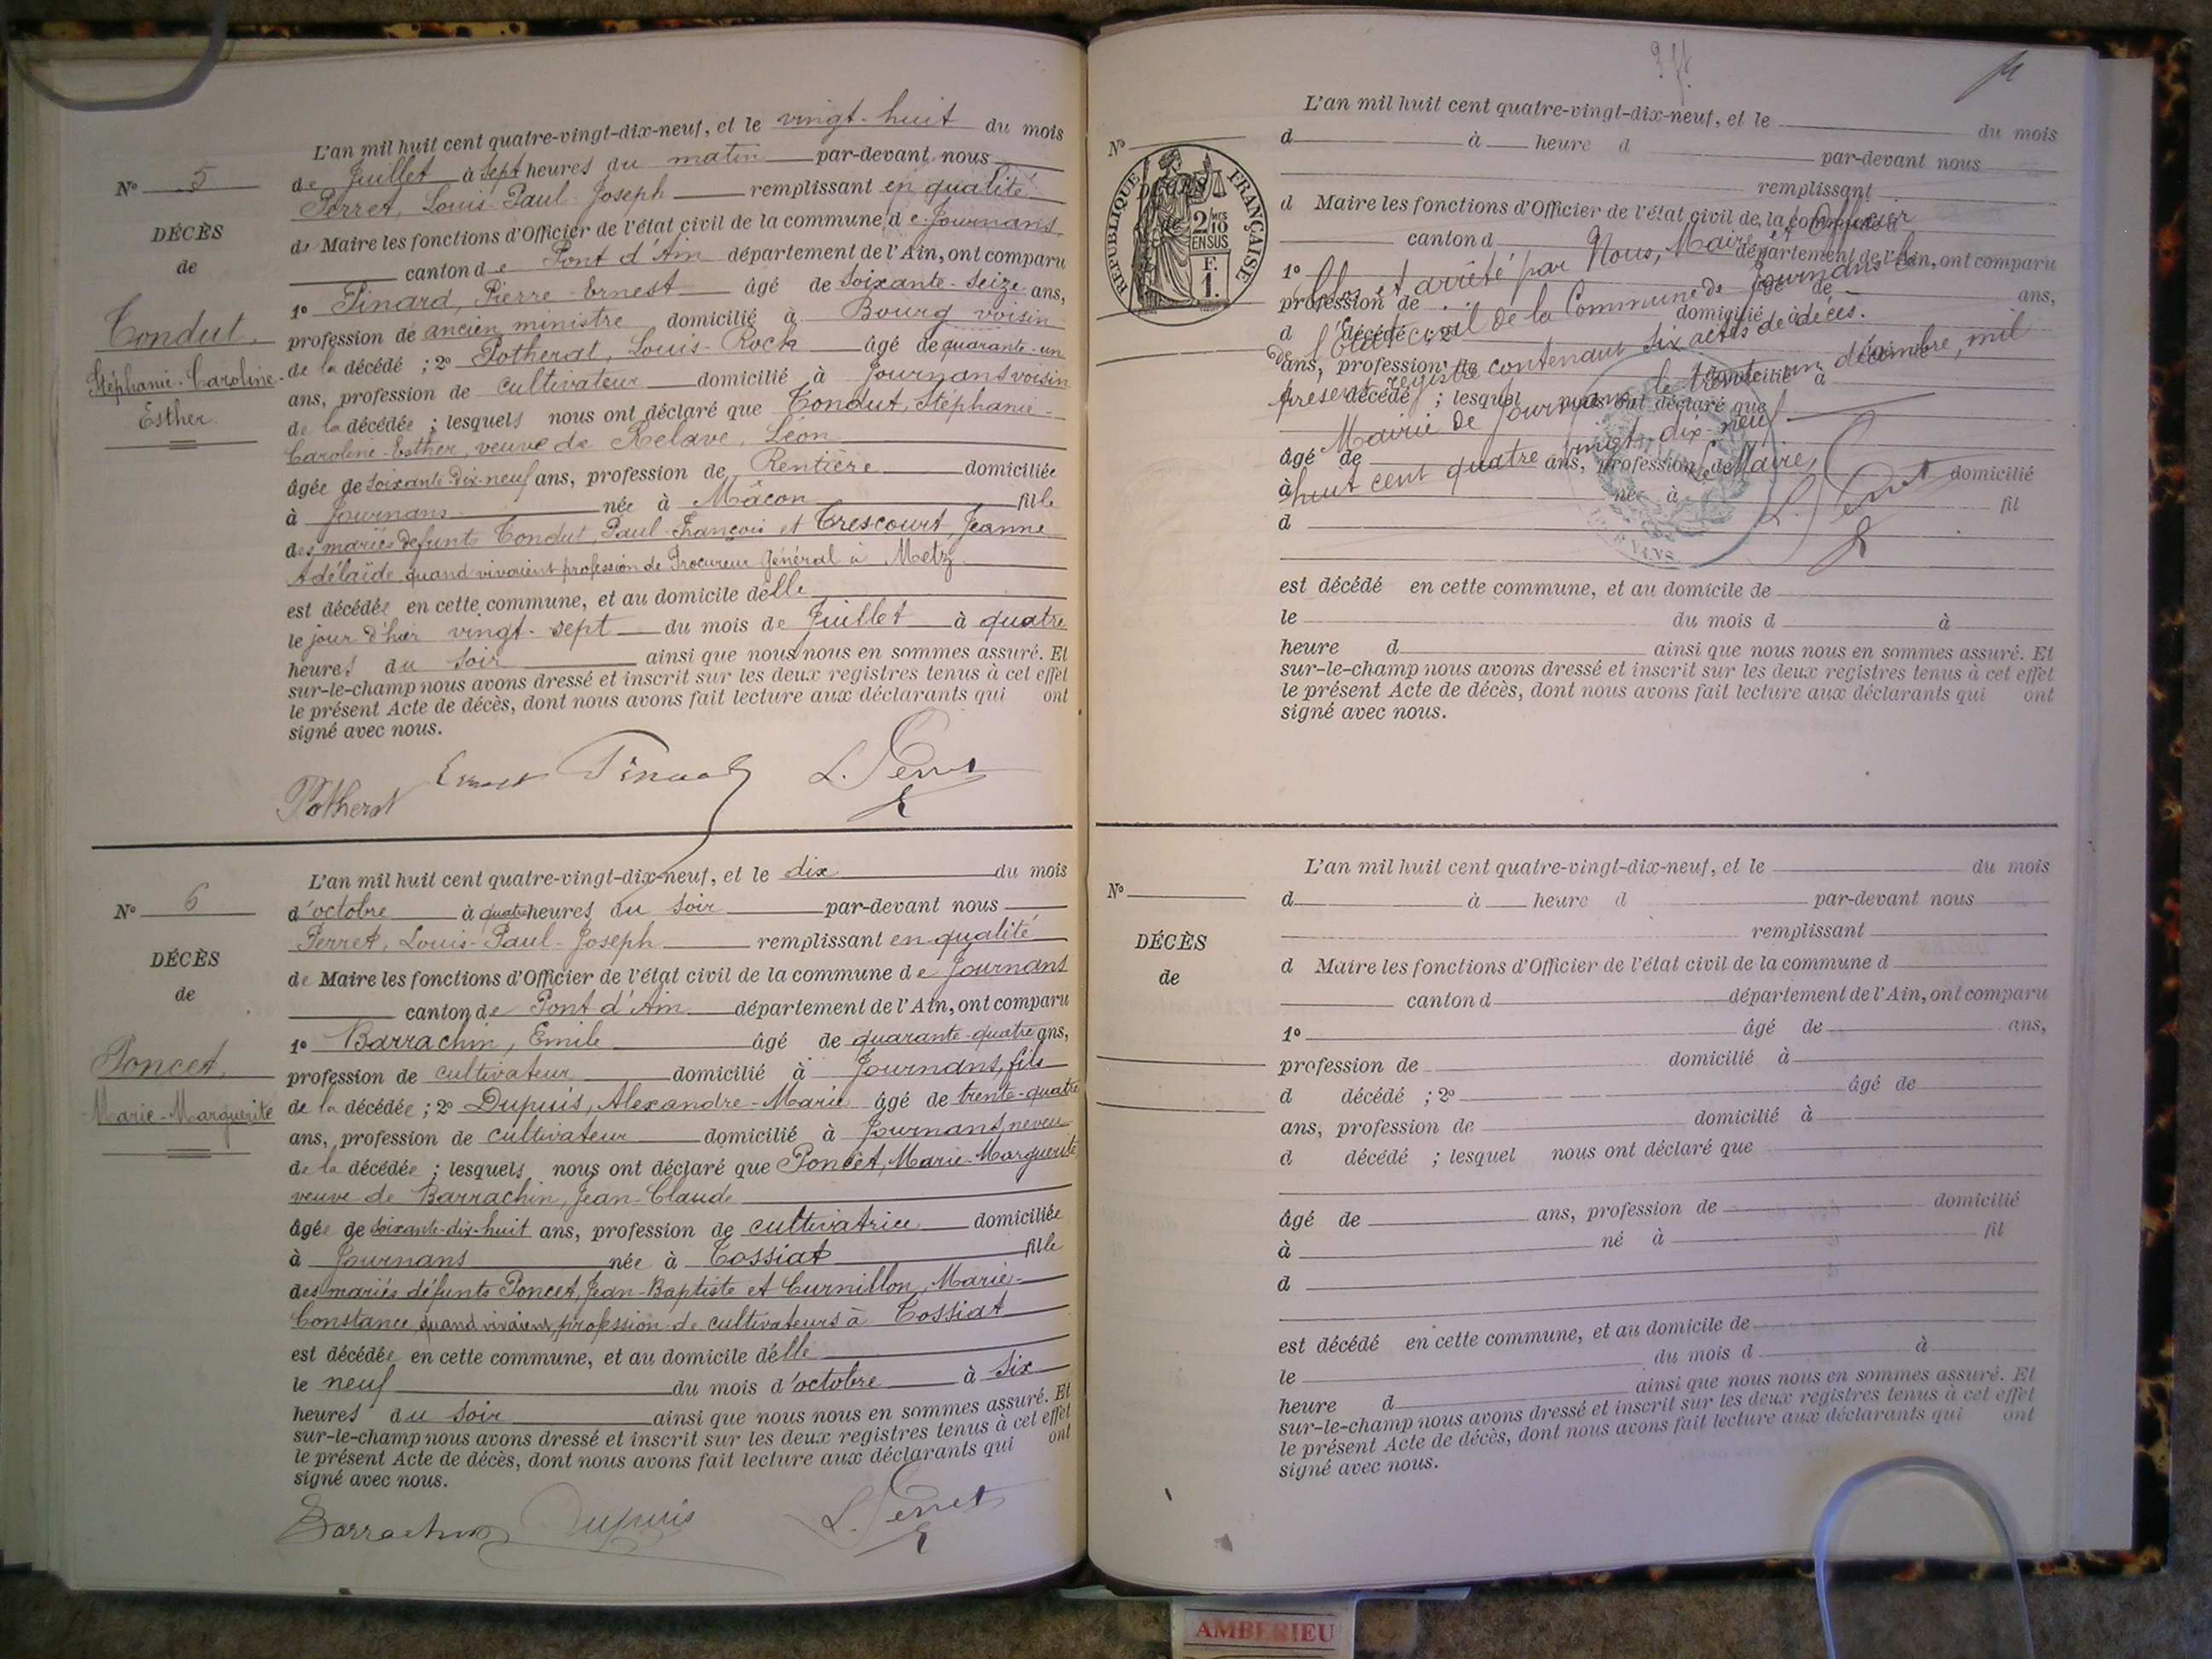 L'an mil huit cent quatre-vingt-dix-neuf, et le vingt-huit du mois
de Juillet à sept heures du matin par-devant nous
Perret, Louis-Paul-Joseph remplissant en qualité
de Maire les fonctions d'Officier de l'état civil de la commune de Journans
canton de Pont d'Ain département de l'Ain, ont comparu
1º Pinard, Pierre-Ernest âgé de soixante-seize ans,
profession de ancien ministre domicilié à Bourg voisin
de la décédé ; 2º Potherat, Louis-Roch âgé de quarante-un
ans, profession de cultivateur domicilié à Journans voisin
de la décédée ; lesquels nous ont déclaré que Condut, Stéphanie-
Caroline-Esther, veuve de Relave, Léon
âgée de soixante-dix-neuf ans, profession de Rentière domiciliée
à Journans née à Mâcon fille
des mariés defunts Condut, Paul-François et Trescourt, Jeanne
Adélaïde, quand vivaient profession de Procureur Général à Metz
est décédée en cette commune, et au domicile delle
le jour d'hier vingt-sept du mois de Juillet à quatre
heures du soir ainsi que nous nous en sommes assuré. Et
sur-le-champ nous avons dressé et inscrit sur les deux registres tenus à cet effet
le présent Acte de décès, dont nous avons fait lecture aux déclarants qui ont
signé avec nous.
Nº 5
DÉCÈS
de
Condut,
Stéphanie-Caroline-
Esther.
Potherat Ernest Pinard L. Perret
L'an mil huit cent quatre-vingt-dix-neuf, et le dix du mois
d'octobre à quatre heures du soir par-devant nous
Perret, Louis-Paul-Joseph remplissant en qualité
de Maire les fonctions d'Officier de l'état civil de la commune de Journans
canton de Pont d'Ain département de l'Ain, ont comparu
1º Barrachin, Emile âgé de quarante-quatre ans,
profession de cultivateur domicilié à Journans, fils
de la décédée ; 2º Dupuis, Alexandre-Marie âgé de trente-quatre
ans, profession de cultivateur domicilié à Journans, neveu
de la décédée ; lesquels nous ont déclaré que Poncet, Marie-Marguerite,
veuve de Barrachin, Jean-Claude
âgée de soixante-dix-huit ans, profession de cultivatrice domiciliée
à Journans née à Tossiat fille
des mariés défunts Poncet, Jean-Baptiste et Curnillon, Marie-
Constance, quand vivaient, profession de cultivateurs à Tossiat
est décédée en cette commune, et au domicile délle
le neuf du mois d'octobre à six
heures du soir ainsi que nous nous en sommes assuré. Et
sur-le-champ nous avons dressé et inscrit sur les deux registres tenus à cet effet
le présent Acte de décès, dont nous avons fait lecture aux déclarants qui ont
signé avec nous.
Nº 6
DÉCÈS
de
Poncet,
Marie-Marguerite
Barrachin Dupuis L. Perret
Nº
RÉPUBLIQUE FRANÇAISE
DÉCÈS
de
2 MES
10
EN SUS
F.
1.
L'an mil huit cent quatre-vingt-dix-neuf, et le du mois
d à heure d par-devant nous
remplissant
d Maire les fonctions d'Officier de l'état civil de la commune d
canton d département de l'Ain, ont comparu
1º âgé de ans,
profession de domicilié à
d décédé ; 2º
ans, profession de domicilié à
d décédé ; lesquel nous ont déclaré que
âgé de ans, profession de domicilié
à né à fil
d
Clos et arrêté par Nous, Maire et Officier
de l'État civil de la Commune de Journans le
présent registre contenant six actes de décès.
Mairie de Journans le trente-un décembre, mil
huit cent quatre vingt-dix-neuf
Le Maire,
L. Perret
est décédé en cette commune, et au domicile de
le du mois d à
heure d ainsi que nous nous en sommes assuré. Et
sur-le-champ nous avons dressé et inscrit sur les deux registres tenus à cet effet
le présent Acte de décès, dont nous avons fait lecture aux déclarants qui ont
signé avec nous.
Nº
DÉCÈS
de
L'an mil huit cent quatre-vingt-dix-neuf, et le du mois
d à heure d par-devant nous
remplissant
d Maire les fonctions d'Officier de l'état civil de la commune d
canton d département de l'Ain, ont comparu
1º âgé de ans,
profession de domicilié à
d décédé ; 2º âgé de
ans, profession de domicilié à
d décédé ; lesquel nous ont déclaré que
âgé de ans, profession de domicilié
à né à fil
d
est décédé en cette commune, et au domicile de
le du mois d à
heure d ainsi que nous nous en sommes assuré. Et
sur-le-champ nous avons dressé et inscrit sur les deux registres tenus à cet effet
le présent Acte de décès, dont nous avons fait lecture aux déclarants qui ont
signé avec nous.
AMBERIEU